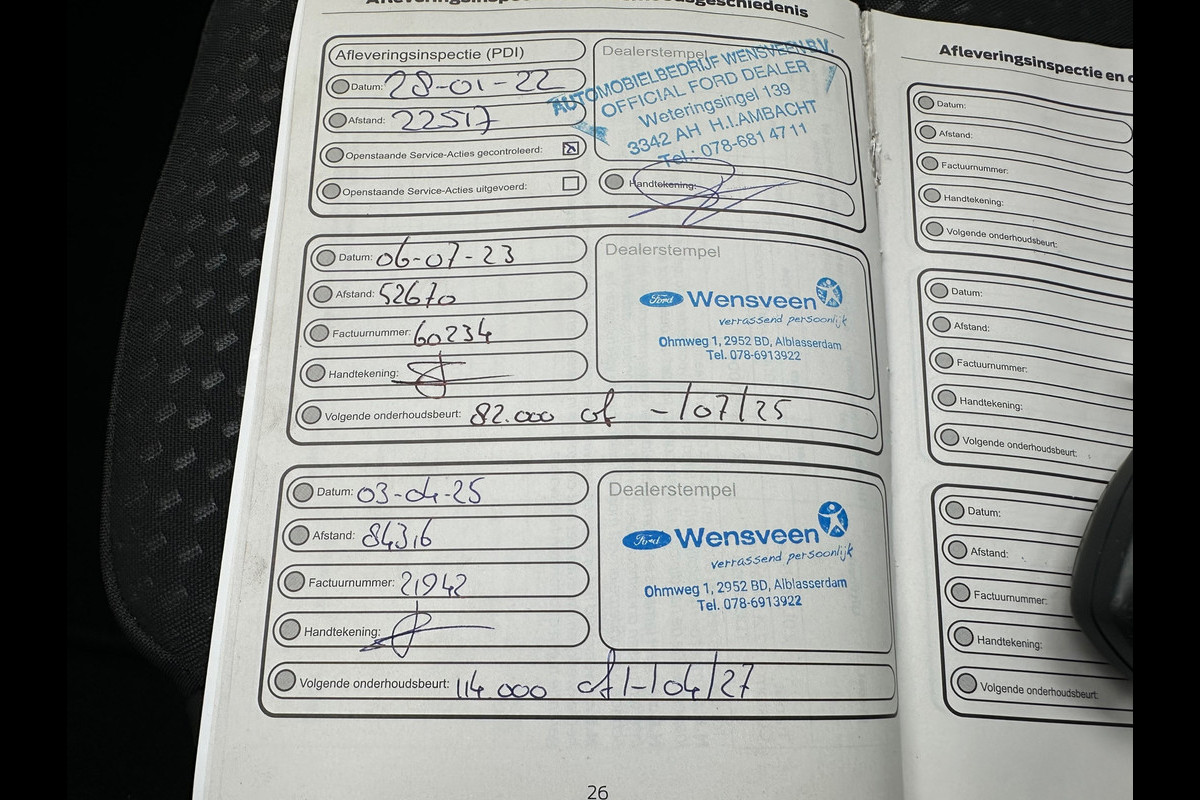 Afleveringsinspectie (PDI)
Datum: 28-01-22
Afstand: 22517
Openstaande Service-Acties gecontroleerd:
Openstaande Service-Acties uitgevoerd:
Dealerstempel
AUTOMOBIELBEDRIJF WENSVEEN B.V.
OFFICIAL FORD DEALER
Weteringsingel 139
3342 AH H.I.AMBACHT
Tel.: 078-681 47 11
Handtekening:
Datum: 06-07-23
Afstand: 52670
Factuurnummer: 60234
Handtekening:
Volgende onderhoudsbeurt: 82.000 of -/07/25
Dealerstempel
Ford Wensveen
verrassend persoonlijk
Ohmweg 1, 2952 BD, Alblasserdam
Tel. 078-6913922
Datum: 03-04-25
Afstand:
Factuurnummer: 21942
Handtekening:
Volgende onderhoudsbeurt: 114.000 of 1-/04/27
Dealerstempel
Ford Wensveen
verrassend persoonlijk
Ohmweg 1, 2952 BD, Alblasserdam
Tel. 078-6913922
26
Afleveringsinspectie en
Datum:
Afstand:
Factuurnummer:
Handtekening:
Volgende onderhoudsbeurt:
Datum:
Afstand:
Factuurnummer:
Handtekening:
Volgende onderhoudsbeurt:
Datum:
Afstand:
Factuurnummer:
Handtekening:
Volgende onderhoudsbeurt: